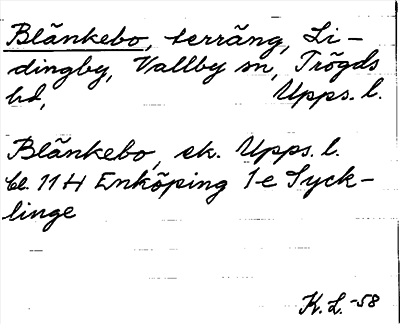 Blänkebo, terräng, Li-
dingby, Vallby sn, Trögds
hd, Upps. l.
Blänkebo, ek. Upps. l.
bl. 11 H Enköping 1 e Syck-
linge
K. L. -58